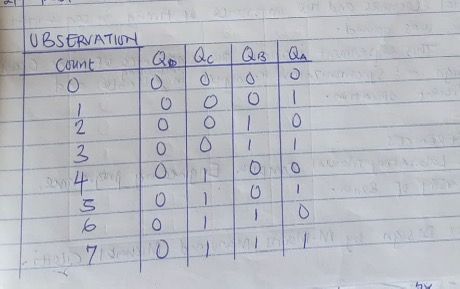 OBSERVATION
Count QD QC QB QA
0 0 0 0 0
1 0 0 0 1
2 0 0 1 0
3 0 0 1 1
4 0 1 0 0
5 0 1 0 1
6 0 1 1 0
7 0 1 1 1